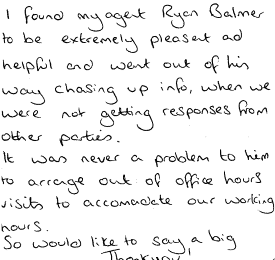 I found my agent Ryan Balmer
to be extremely pleasent ad
helpful and went out of his
way chasing up info, when we
were not getting responses from
other parties.
It was never a problem to him
to arrange out of office hours
visits to accomodate our working
hours.
So would like to say a big
Thankyou!